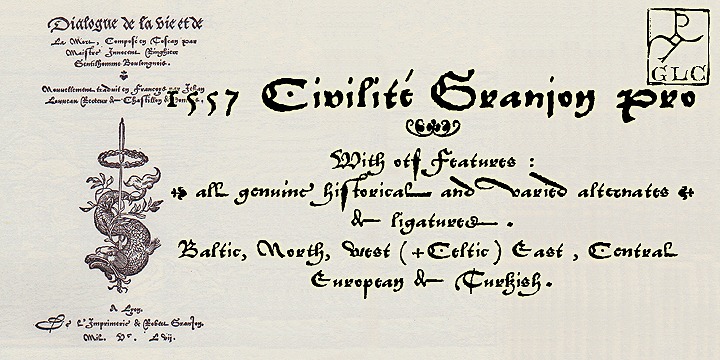 Dialogue de la vie et de
La Mort, Composé en Toscan par
Maistre Innocent Ringhiere
Gentilhomme Boulongnois.
Nouvellement traduit en Françoys par Jehan
Louveau Recteur de Chastillon de Dombes.
GLC
1557 Civilité Granjon Pro
With otf Features :
all genuine historical and varied alternates
& ligatures .
Baltic, North, West (+Celtic) East , Central
European & Turkish.
A Lyon,
De l'Imprimerie de Robert Granjon.
Mil. Vc. Lvij.